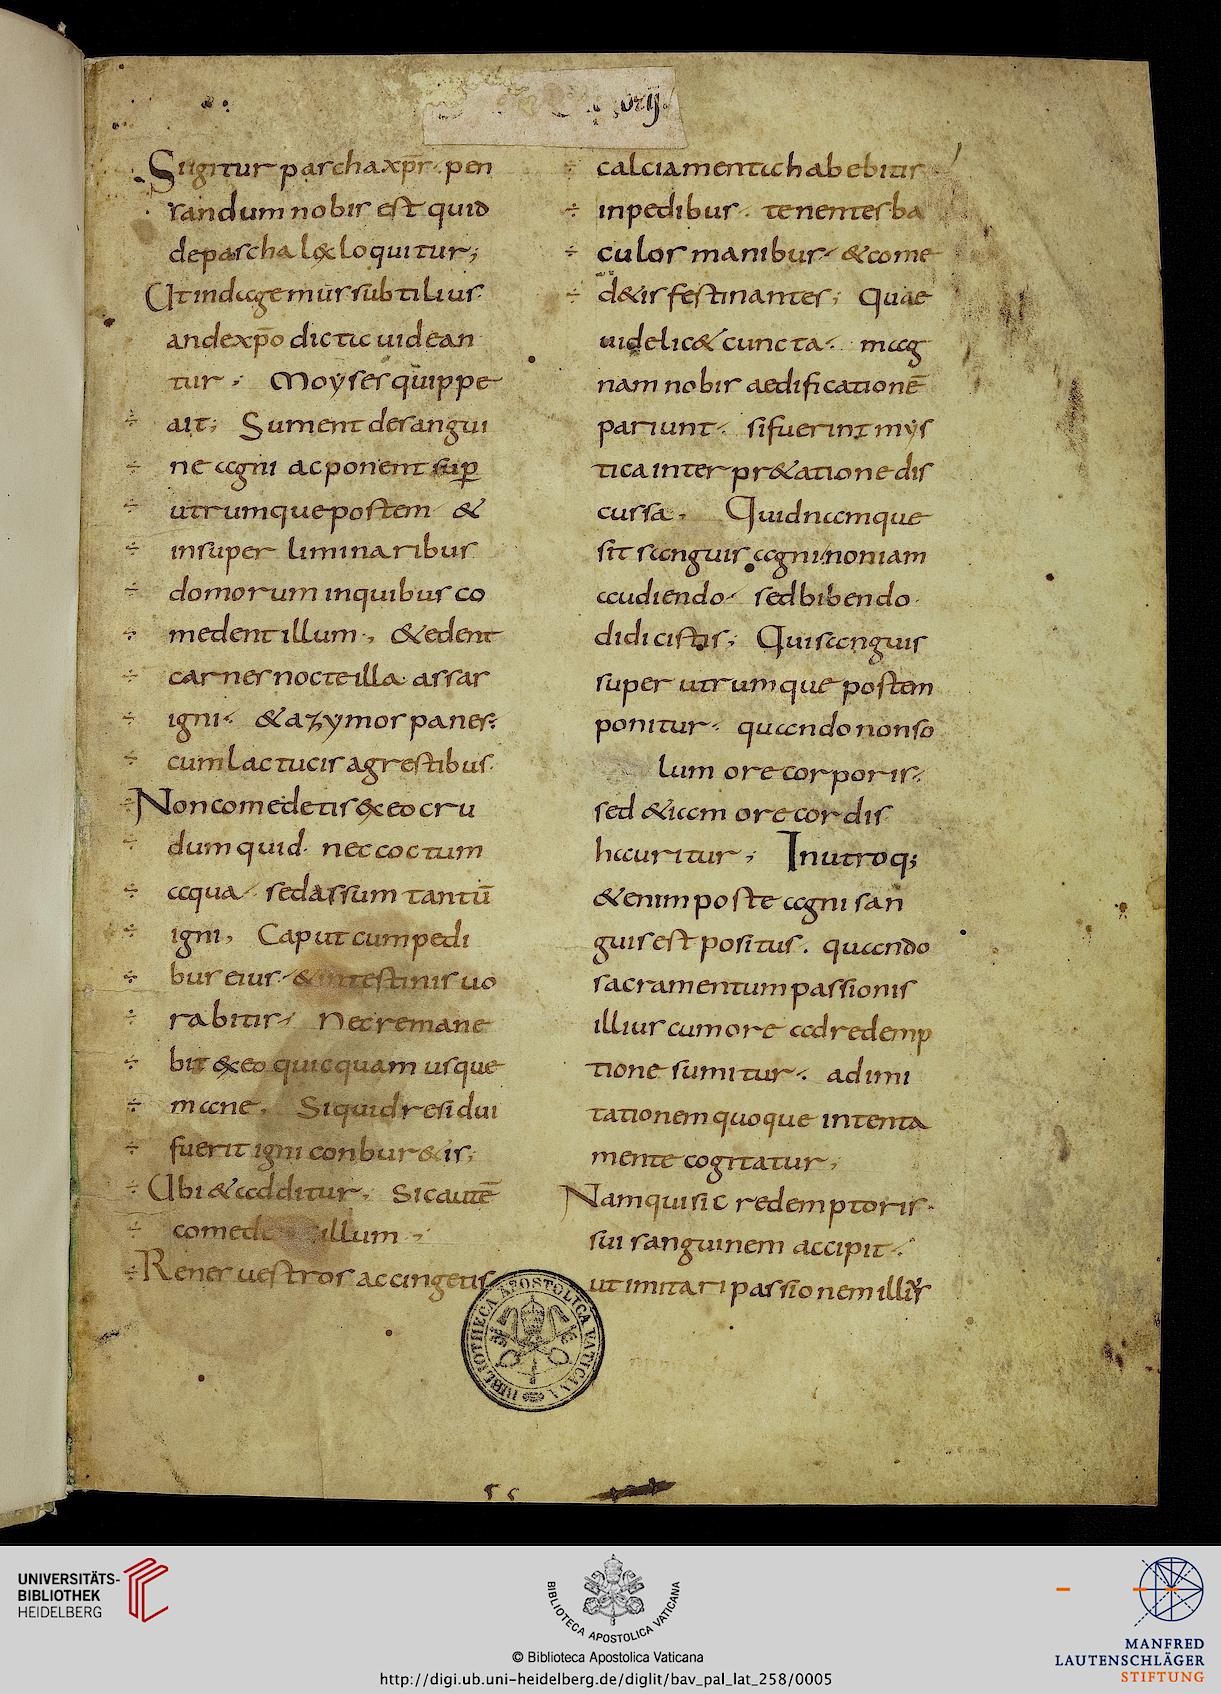 Siigitur pascha xp̄s · pen
sandum nobis est quid
depascha lex loquitur;
Ut indagemus subtilius
andexp̄o dicta uidean
tur; Moyses quippe
ait; Sument desangui
ne agni ac ponent sup̱
utrumque postem &
insuper liminaribus
domorum inquibus co
medent illum; & edent
carnes nocte illa assas
igni; & azymos panes;
cum lactucis agrestibus.
Non comedetis exeo cru
dum quid · nec coctum
aqua sed assum tantū
igni, Caput cum pedi
bus eius & intestinis uo
rabitis; Nec remane
bit exeo quicquam usque
mane, Siquid residui
fuerit igni conbur&is;
Ubi & additur, Sicautē
comede illum
Renes uestros accingetis
calciamenta habebitis
inpedibus; tenentes ba
culos manibus; & come
d&is festinantes; Quae
uidelic& cuncta; mag
nam nobis aedificationē
pariunt; sifuerint mys
tica interpr&atione dis
cussa, Quid namque
sit sanguis agni noniam
audiendo; sed bibendo
didicistis; Qui sanguis
super utrumque postem
ponitur; quando nonso
lum ore corporis;
sed &iam ore cordis
hauritur; Inutroq;
& enim poste agni san
guis est positus. quando
sacramentum passionis
illius cum ore adredemp
tione sumitur; adimi
tationem quoque intenta
mente cogitatur;
Nam qui sic redemptoris
sui sanguinem accipit
ut imitari passionem illi's
BIBLIOTHECA APOSTOLICA VATICANA
UNIVERSITÄTS-
BIBLIOTHEK
HEIDELBERG
BIBLIOTECA APOSTOLICA VATICANA
© Biblioteca Apostolica Vaticana
http://digi.ub.uni-heidelberg.de/diglit/bav_pal_lat_258/0005
MANFRED
LAUTENSCHLÄGER
STIFTUNG